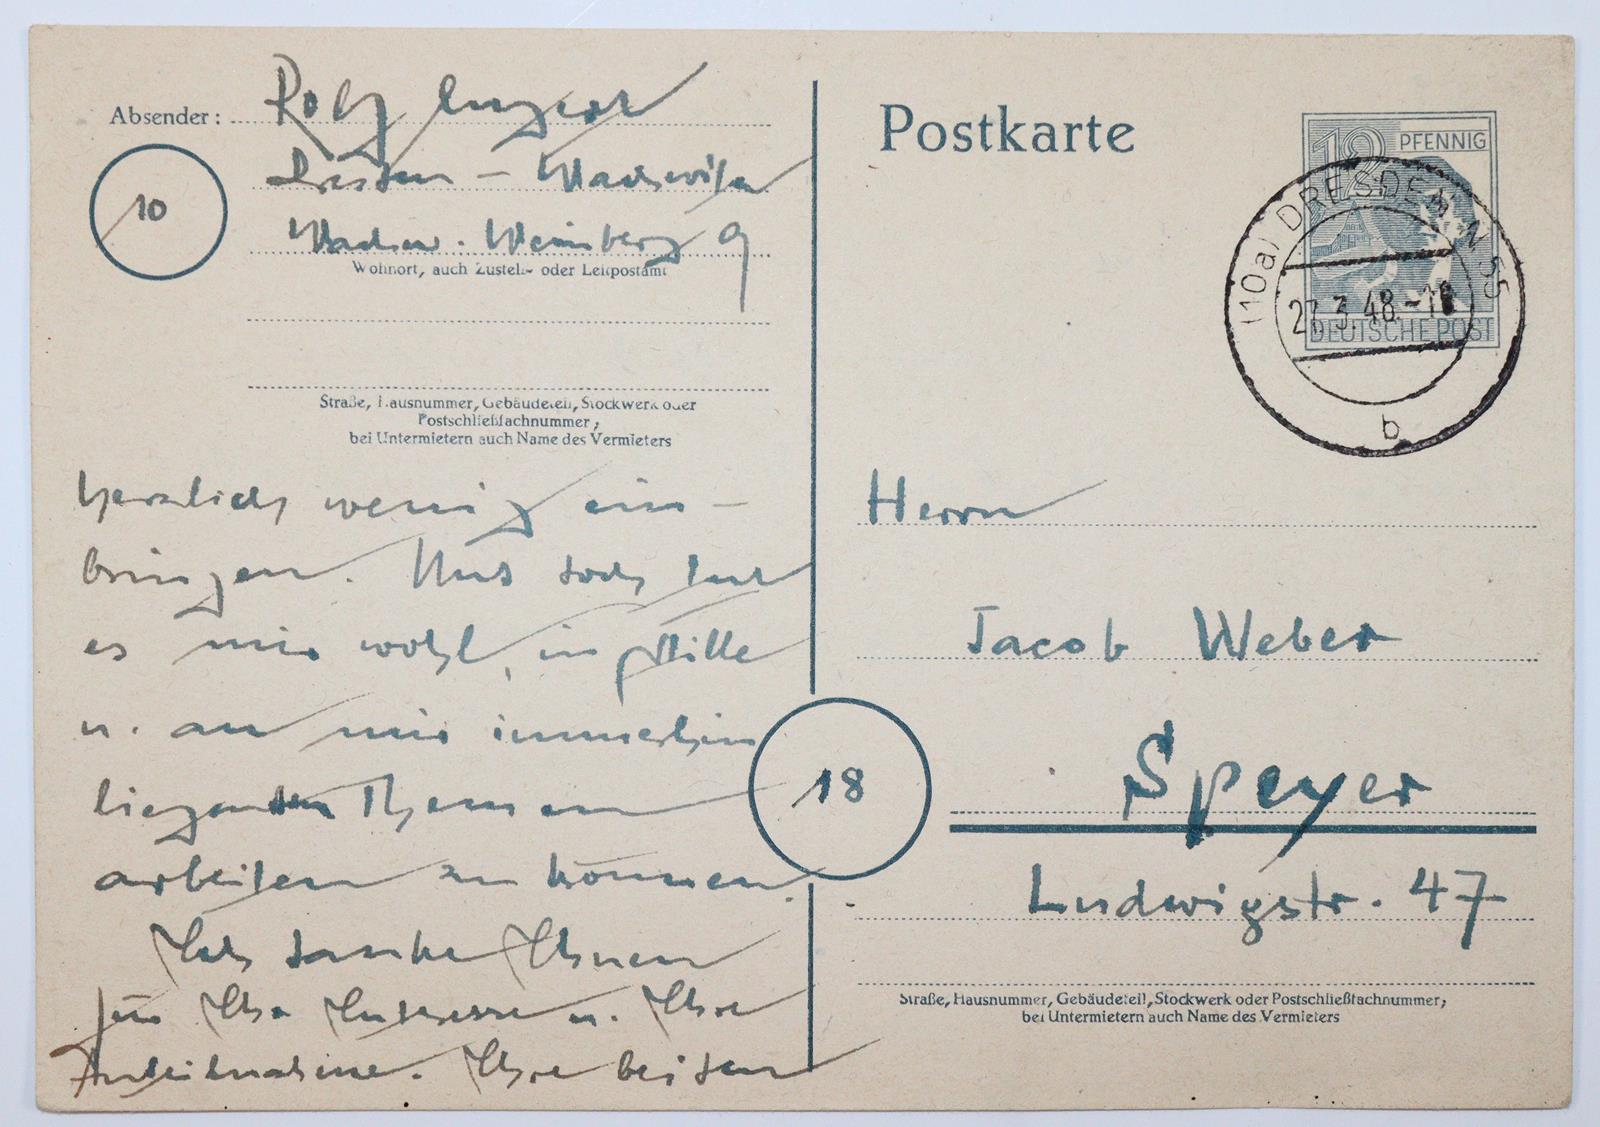 Absender:
Dresden - Wachwitz
Wachw. Weinberg 9
10
Wohnort, auch Zustell- oder Leitpostamt
Straße, Hausnummer, Gebäudeteil, Stockwerk oder
Postschließfachnummer;
bei Untermietern auch Name des Vermieters
herzlich wenig ein-
bringen. Und doch tut
es mir wohl, in Stille
u. an mir immerhin
liegenden Themen
arbeiten zu können.
Ich danke Ihnen
für Ihr Interesse u. Ihre
Anteilnahme. Ihre beiden
Postkarte
12 PFENNIG
DEUTSCHE POST
(10a) DRESDEN N 55
27.3.48.-18
b
Herrn
Jacob Weber
18
Speyer
Ludwigstr. 47
Straße, Hausnummer, Gebäudeteil, Stockwerk oder Postschließfachnummer;
bei Untermietern auch Name des Vermieters